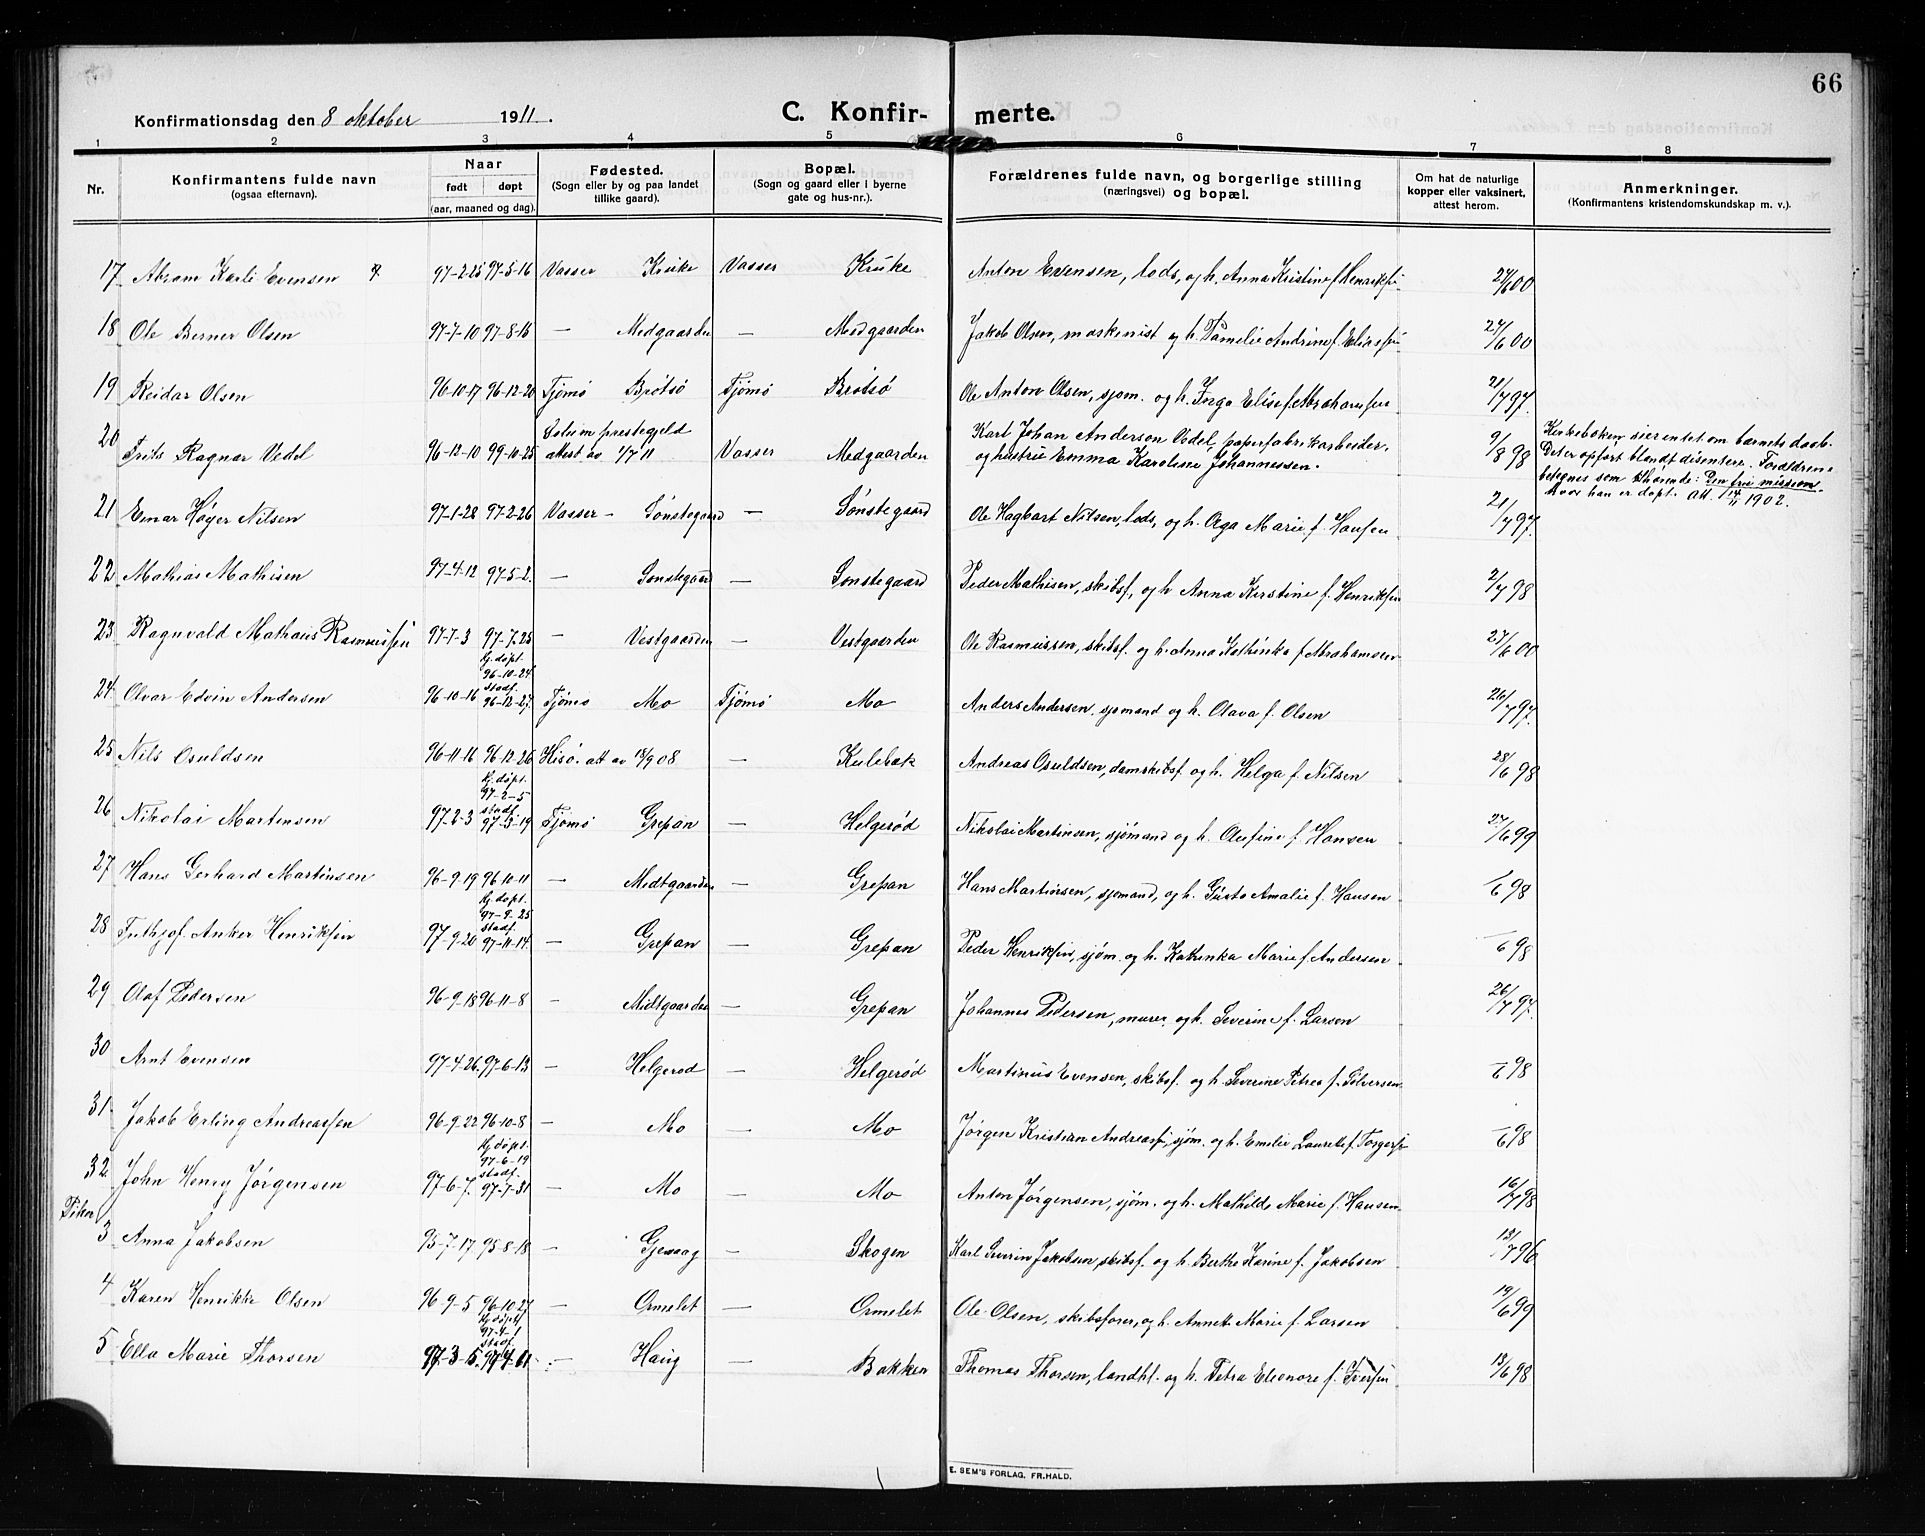 66
Konfirmationsdag den 8 oktober 1911.
C. Konfirmerte.
1 2 3 4 5 6 7 8
Nr. Konfirmantens fulde navn (ogsaa efternavn). Naar født døpt (aar, maaned og dag). Fødested. (Sogn eller by og paa landet tillike gaard). Bopæl. (Sogn og gaard eller i byerne gate og hus-nr.). Forældrenes fulde navn, og borgerlige stilling (næringsvei) og bopæl. Om hat de naturlige kopper eller vaksinert, attest herom. Anmerkninger. (Konfirmantens kristendomskundskap m. v.).
17 Abram Karli Evensen 97-2-25 97-5-16 Vasser Kruke Vasser Kruke Anton Evensen, lods, og h. Anna Kristine f. Henriksen 27/6 00
18 Ole Berner Olsen 97-7-10 97-8-15 — Medgaarden — Medgaarden Jakob Olsen, maskenist og h. Pamelie Andrine f. Eliassen 27/6 00
19 Reidar Olsen 96-10-17 96-12-20 Tjømø Brøtsø Tjømø Brøtsø Ole Anton Olsen, sjøm. og h. Inga Elise f. Abrahamsen 21/7 97.
20 Frits Ragnar Vedel 96-12-10 99-10-25 prestegjeld attest av 1/7 11 Vasser Medgaarden Karl Johan Anderson Vedel, papirfabrikarbeider, og hustru Emma Karoline Johannessen. 9/8 98 Kirkeboken sier intet om barnets daab. Det er opført blandt disentere. Forældrene betegnes som tilhørende: Den frie mission. Hvor han er døpt. Att. 14/11 1902.
21 Einar Høyer Nilsen 97-1-28 97-2-26 Vasser — Sønstegaard — Sønstegaard Ole Hagbart Nilsen, lods, og h. Aga Marie f. Hansen 21/7 97.
22 Mathias Mathisen 97-4-12 97-5-2. — Sønstegaard — Sønstegaard Peder Mathisen, skibsf., og h. Anna Kirstine f. Henriksen 2/7 98
23 Ragnvald Mathæus Rasmussen 97-7-3 97-7-25 — Vestgaarden — Vestgaarden Ole Rasmussen, skibsf. og h. Anna Kathinka f. Abrahamsen 27/6 00
24 Olvar Edvin Andersen 96-10-16 hj. døpt. 96-10-24 stadf. 96-12-27. Tjømø Mo Tjømø Mo Anders Andersen, sjømand og h. Olava f. Olsen 26/7 97.
25 Nils Osuldsen 96-11-16 96-12-26 Hisø. att av 18/9 08 — Kulebak Andreas Osuldsen, damskibsf. og h. Helga f. Nilsen 28/6 98
26 Nikolai Martensen 97-2-3 hj. døpt. 97-2-5 stadf. 97-3-19 Tjømø Grepan — Helgerød Nikolai Martinsen, sjømand og h. Olefine f. Hansen 27/6 99
27 Hans Gerhard Martinsen 96-9-19 96-10-11 — Midtgaarden — Grepan Hans Martinsen, sjømand, og h. Gusta Amalie f. Hansen —/6 98
28 Frithjof Anker Henriksen 97-9-20 hj. døpt. 97-9-25 stadf. 97-11-14 — Grepan — Grepan Peder Henriksen, sjøm. og h. Kathinka Marie f. Andersen —/6 98
29 Olaf Pedersen 96-9-18 96-11-8 — Midtgaarden — Grepan Johannes Pedersen, murer, og h. Severine f. Larsen 26/7 97.
30 Arnt Evensen 97-4-26 97-6-13 — Helgerød — Helgerød Martinus Evensen, skibsf. og h. Severine Petrea f. Sølversen —/6 98
31 Jakob Erling Andreassen 96-9-22 96-10-8 — Mo — Mo Jørgen Kristian Andreass., sjøm. og h. Emilie Laurette f. Torgersen —/6 98
32. John Henry Jørgensen 97-6-7. hj. døpt. 97-6-19 stadf. 97-7-31 — Mo — Mo Anton Jørgensen, sjøm. og h. Mathilde Marie f. Hansen 16/7 98
Piker
3 Anna Jakobsen 95-7-17 95-8-18 — — Skogen Karl Severin Jakobsen, skibsf. og h. Berthe Karine f. Jakobsen 13/7 96
4 Karen Henrikke Olsen 96-9-5 96-10-27 — Ormelet — Ormelet Ole Olsen, skibsfører, og h. Annette Marie f. Larsen 19/6 99
5 Ella Marie Thorsen 97-3-5. hj. døpt 97-4-1 stadf. — Haug — Bakken Thomas Thorsen, landhl. og h. Petra Eleonore f. Iversen 13/6 98
E. SEM'S FORLAG, FR.HALD.